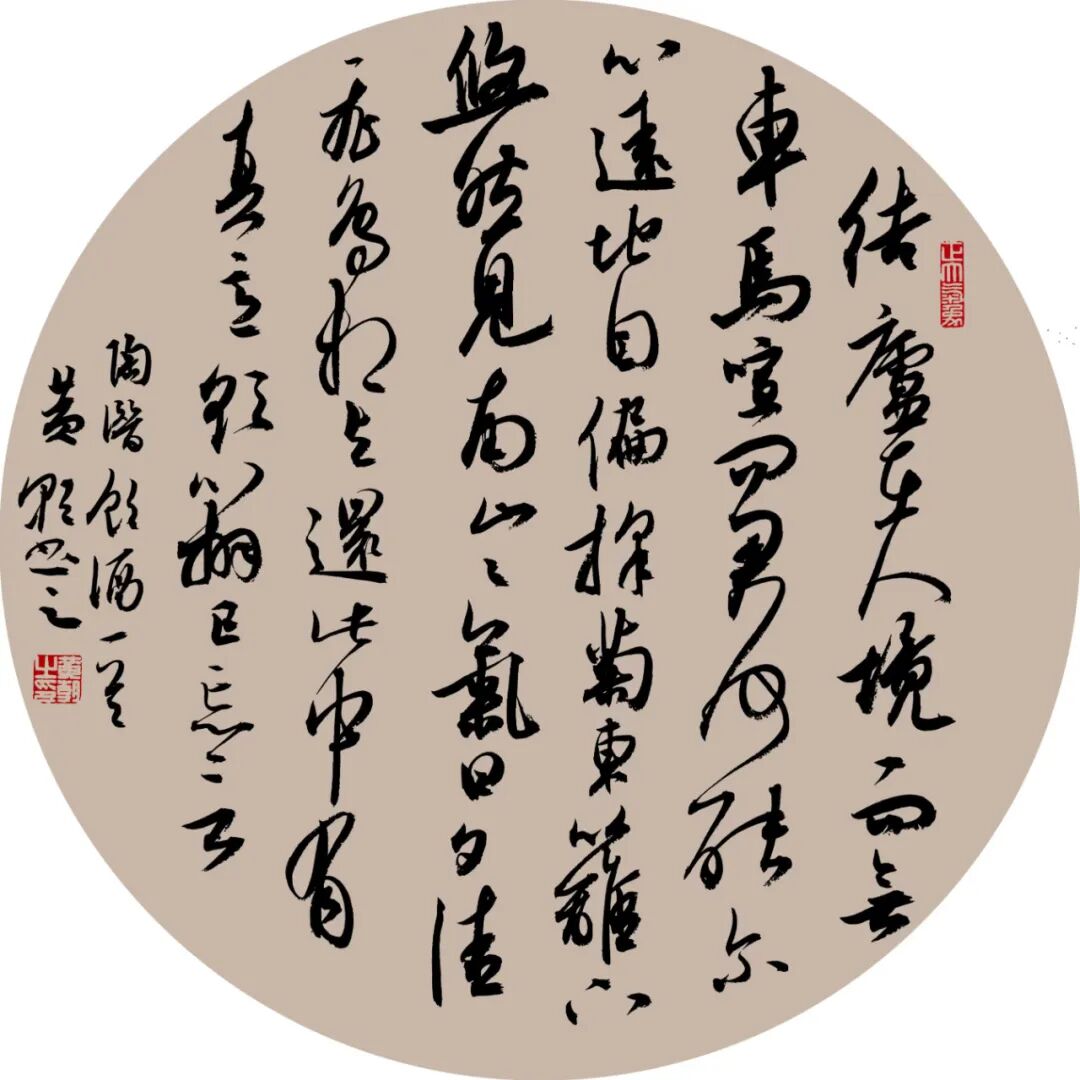 結廬在人境而無
車馬喧問君何能尔
心遠地自偏採菊東籬下
悠然見南山々氣日夕佳
飛鳥相与還此中有
真意欲辨已忘言
陶潛飲酒一首
黄 书之